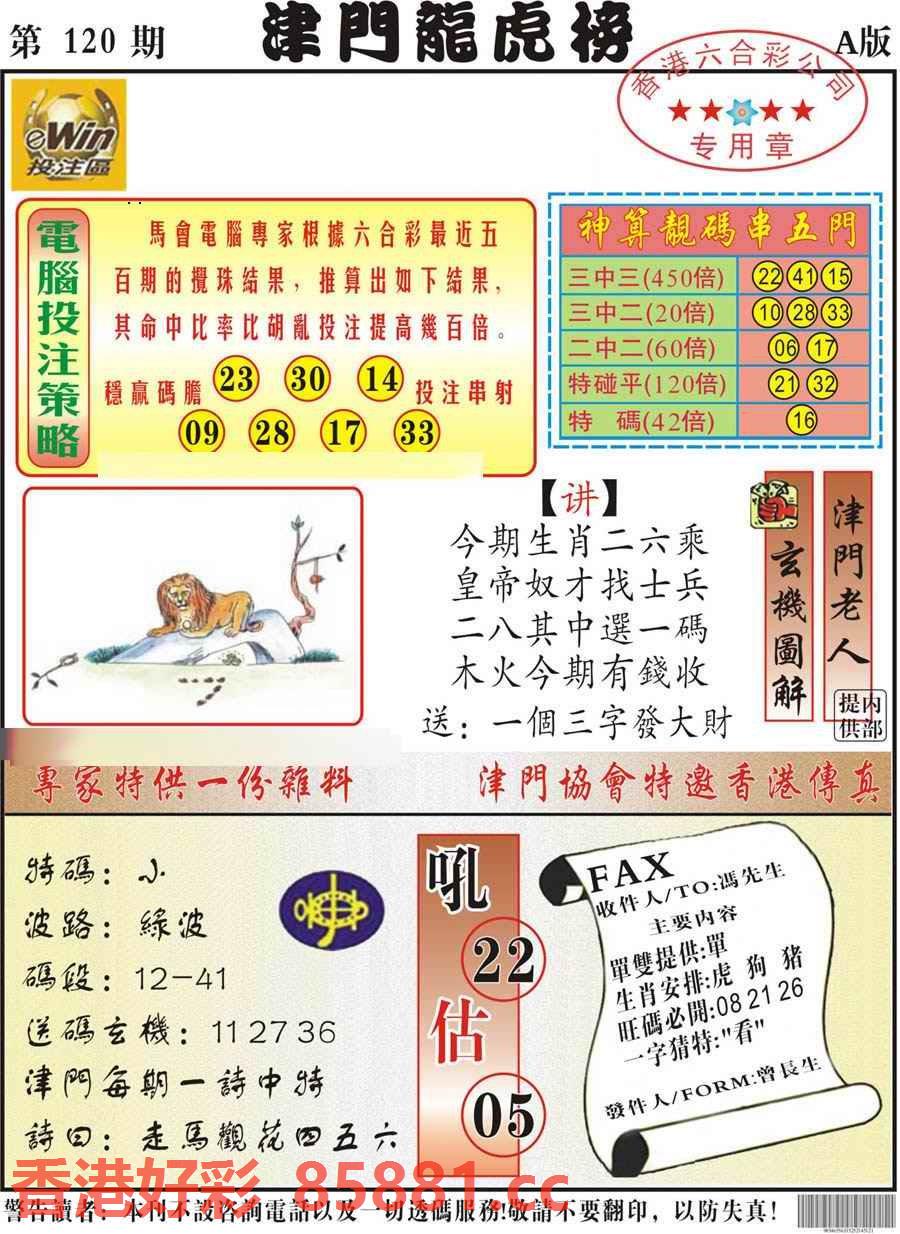 第 120 期
津門龍虎榜
A版
香港六合彩公司
专用章
eWin
投注區
電腦投注策略
馬會電腦專家根據六合彩最近五
百期的攪珠結果，推算出如下結果，
其命中比率比胡亂投注提高幾百倍。
穩赢碼膽 23 30 14 投注串射
09 28 17 33
神算靚碼串五門
三中三(450倍) 22 41 15
三中二(20倍) 10 28 33
二中二(60倍) 06 17
特碰平(120倍) 21 32
特 碼(42倍) 16
【讲】
今期生肖二六乘
皇帝奴才找士兵
二八其中選一碼
木火今期有錢收
送：一個三字發大財
玄機圖解
津門老人
内部
提供
專家特供一份雜料
津門協會特邀香港傳真
特碼：小
波路：綠波
碼段：12—41
送碼玄機：11 27 36
津門每期一詩中特
詩曰：走馬觀花四五六
吼
22
估
05
FAX
收件人/TO:馮先生
主要内容
單雙提供:單
生肖安排:虎 狗 猪
旺碼必開:08 21 26
一字猜特:"看"
發件人/FORM:曾長生
香港好彩 85881.cc
警告讀者：本刊不設咨詢電話以及一切透碼服務!敬請不要翻印，以防失真！